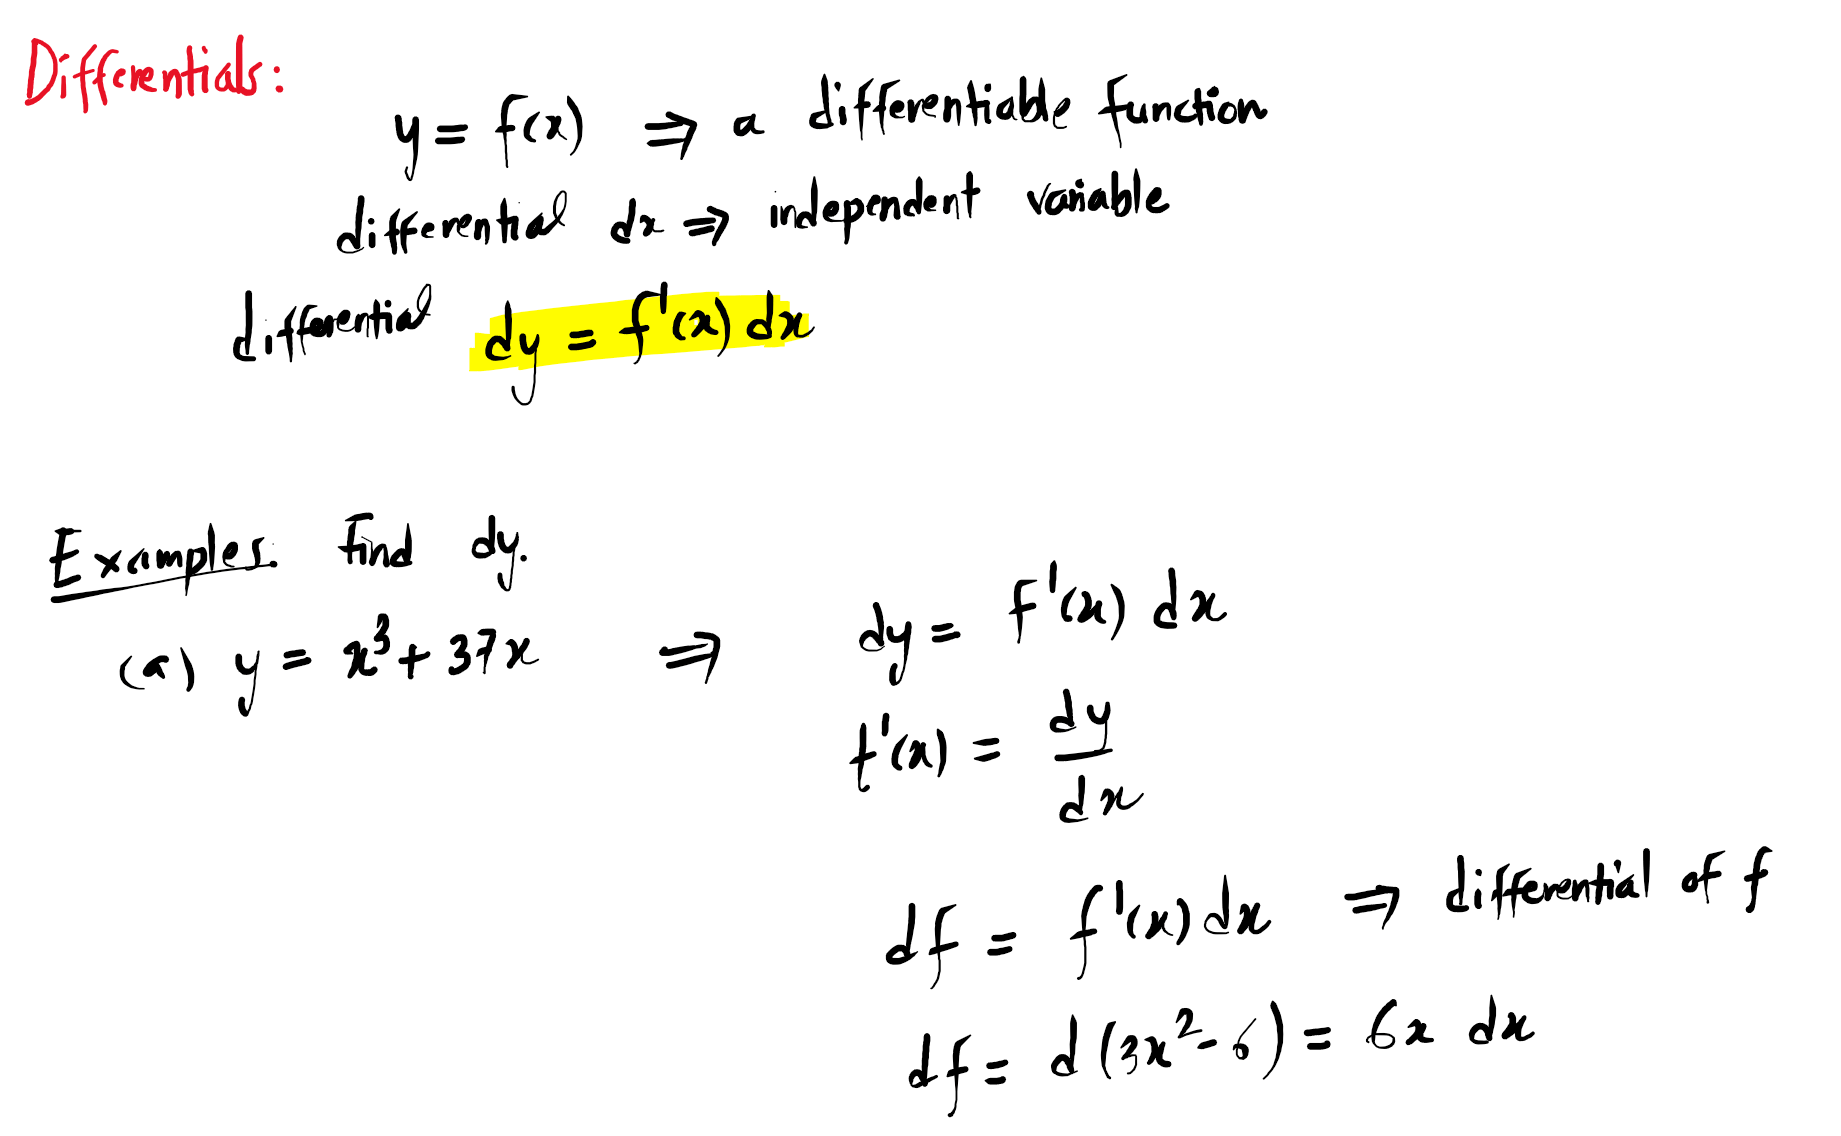 Differentials:
y = f(x) ⇒ a differentiable function
differential dx ⇒ independent variable
differential dy = f'(x) dx
Examples. Find dy.
(a) y = x³ + 37x ⇒ dy = f'(x) dx
f'(x) = dy/dx
df = f'(x) dx ⇒ differential of f
df = d(3x² - 6) = 6x dx